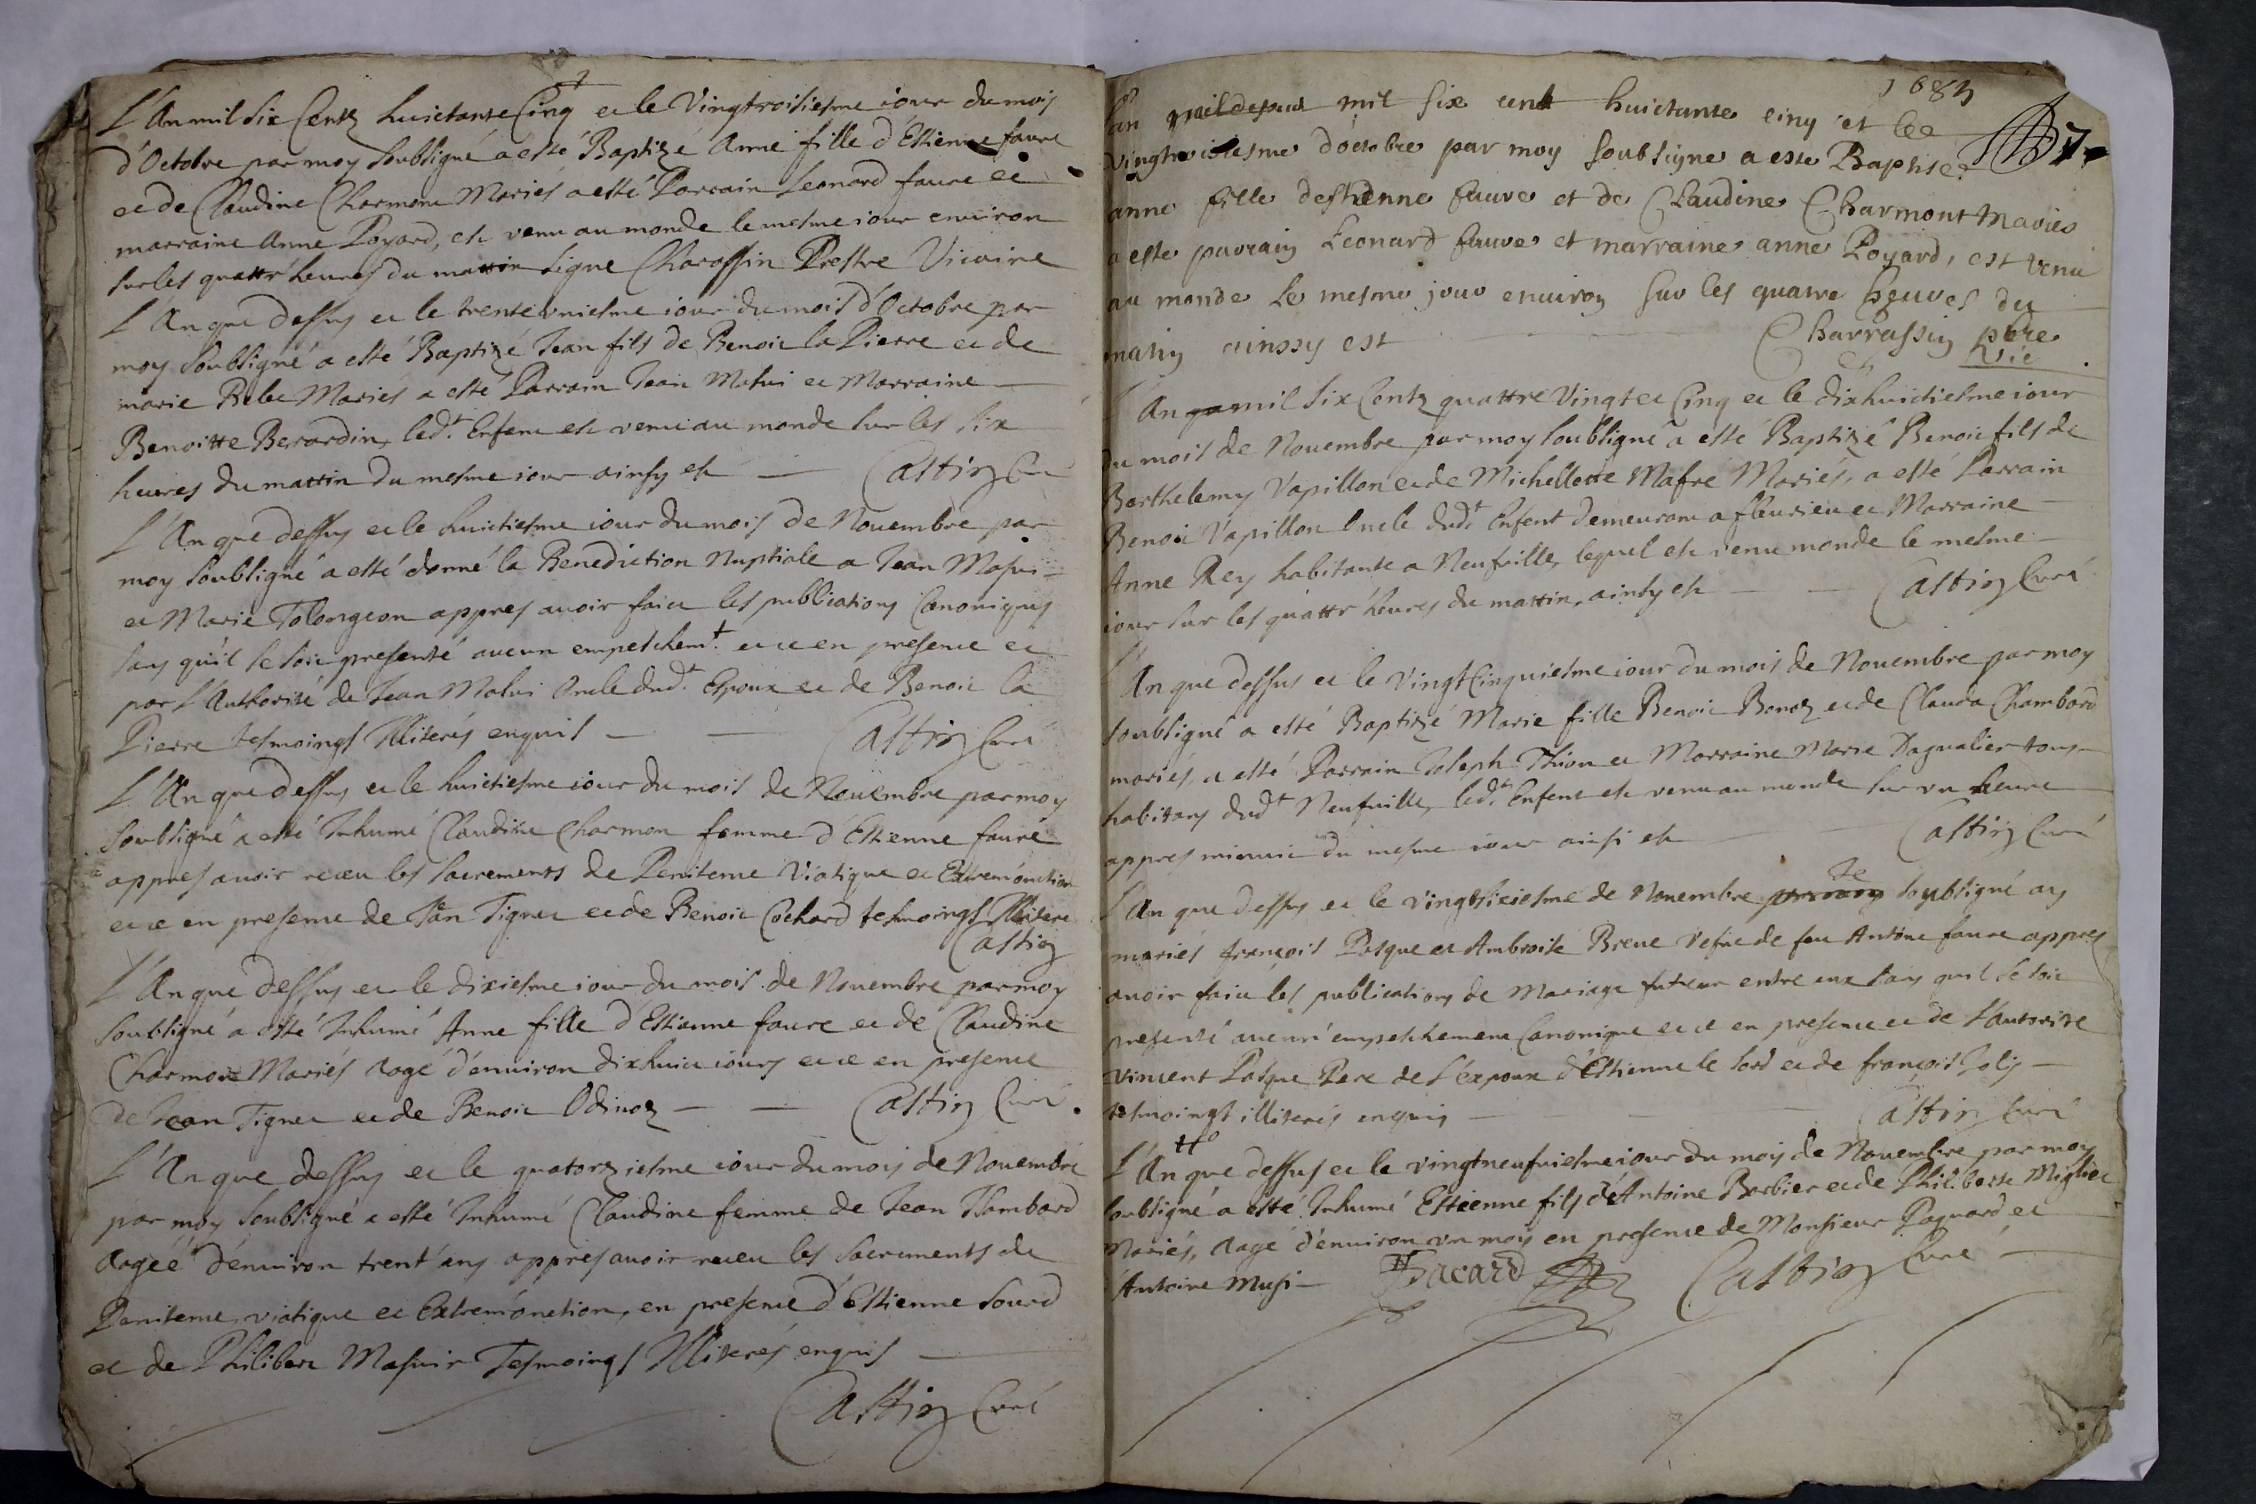 L'An mil Six Centz huictante Cinq et le Vingtroisiesme iour du mois
d'Octobre par moy Soubsigné a esté Baptizé Anne fille d'Estienne faure
et de Claudine Charmon Mariés a esté Parrain Leonard faure et
marraine Anne Poyard, est venu au monde le mesme iour environ
sur les quattr'heures du mattin Signe Charassin Prestre Vicaire
L'An que dessus et le trente vniesme iour du mois d'Octobre par
moy Soubsigné a esté Baptizé Jean fils de Benoit la Pierre et de
marie Mariés a esté Parrain Jean et Marraine
Benoitte Berardin, led.t Enfent est venu au monde sur les Six
heures du mattin du mesme iour ainsy est Castin Curé
L'An que dessus et le huictiesme iour du mois de Nouembre par
moy Soubsigné a esté donné la Benediction Nuptiale a Jean
et Marie Tolongeon appres auoir faict les publications Canoniques
sans qu'il se soit presenté aucun empeschem.t et ce en presence et
par L'Authorité de Jean Oncle dud.t Epoux et de Benoit la
Pierre tesmoings Illiterés enquis Castin Curé
L'An que dessus et le huictiesme iour du mois de Nouembre par moy
Soubsigné a esté Inhumé Claudine Charmon femme d'Estienne faure
appres auoir receu les Sacrements de Penitence Viatique et Extremonction
et ce en presence de Jean Tignet et de Benoit Cochard tesmoings Illitere
Castin
L'An que dessus et le dixiesme iour du mois de Nouembre par moy
Soubsigné a esté Inhumé Anne fille d'Estienne faure et de Claudine
Charmon Mariés aagé d'enuiron dixhuict iours et ce en presence
de Jean Tignet et de Benoit Odinoz Castin Curé
L'An que dessus et le quatorziesme iour du mois de Nouembre
par moy Soubsigné a esté Inhumé Claudine femme de Jean
aagée d'enuiron trent'ans appres auoir receu les Sacrements de
Penitence, viatique et Extremonction, en presence d'Estienne Sourd
et de Philibert Tesmoings Illiterés enquis
Castin Curé
1685
L'an mil six cent huictante cinq et le
vingtroisiesme d'octobre par moy soubsigne a este Baptisée
anne fille destienne faure et de Claudine Charmont Maries
a este parrain Leonard faure et marraine anne Poyard, est venu
au monde le mesme jour enuiron sur les quatre heures du
matin ainssy est Charrassin pbre
vic
L'An mil Six Centz quattre Vingt et Cinq et le dixhuictiesme iour
du mois de Nouembre par moy Soubsigné a esté Baptizé Benoit fils de
Barthelemy Vapillon et de Michellotte Mariés, a esté Parrain
Benoit Vapillon Oncle dud.t Enfent demeurant a fleurieu et Marraine
Anne Rey habitante a Neufuille, lequel est venu monde le mesme
iour sur les quattr'heures du mattin, ainsy est Castin Curé
L'An que dessus et le vingtCinquiesme iour du mois de Nouembre par moy
soubsigné a esté Baptizé Marie fille Benoit et de Clauda Chambard
mariés, a esté Parrain Joseph Thion et Marraine Marie tous
habitans dud.t Neufuille, led.t Enfent est venu au monde sur vn heure
appres minuit du mesme iour ainsi est Castin Curé
L'An que dessus et le vingtsixiesme de Nouembre Je soubsigné ay
mariés françois Pasque et Ambroise Breue vefue de feu Antoine faure appres
auoir faict les publications de Mariage futeur entre eux sans quil se soit
presenté aucun empeschement Canonique et ce en presence et de L'autorite
Vincent Pasque Pere de L'expoux d'Estienne le Sord et de françois Joly
tesmoings illiterés enquis Castin Curé
L'An que dessus et le vingtneufuiesme iour du mois de Nouembre par moy
soubsigné a esté Inhumé Estienne fils d'Antoine Barbier et de Philiberte
Mariés, aagé d'enuiron vn mois en presence de Monsieur et
Antoine Castin Curé